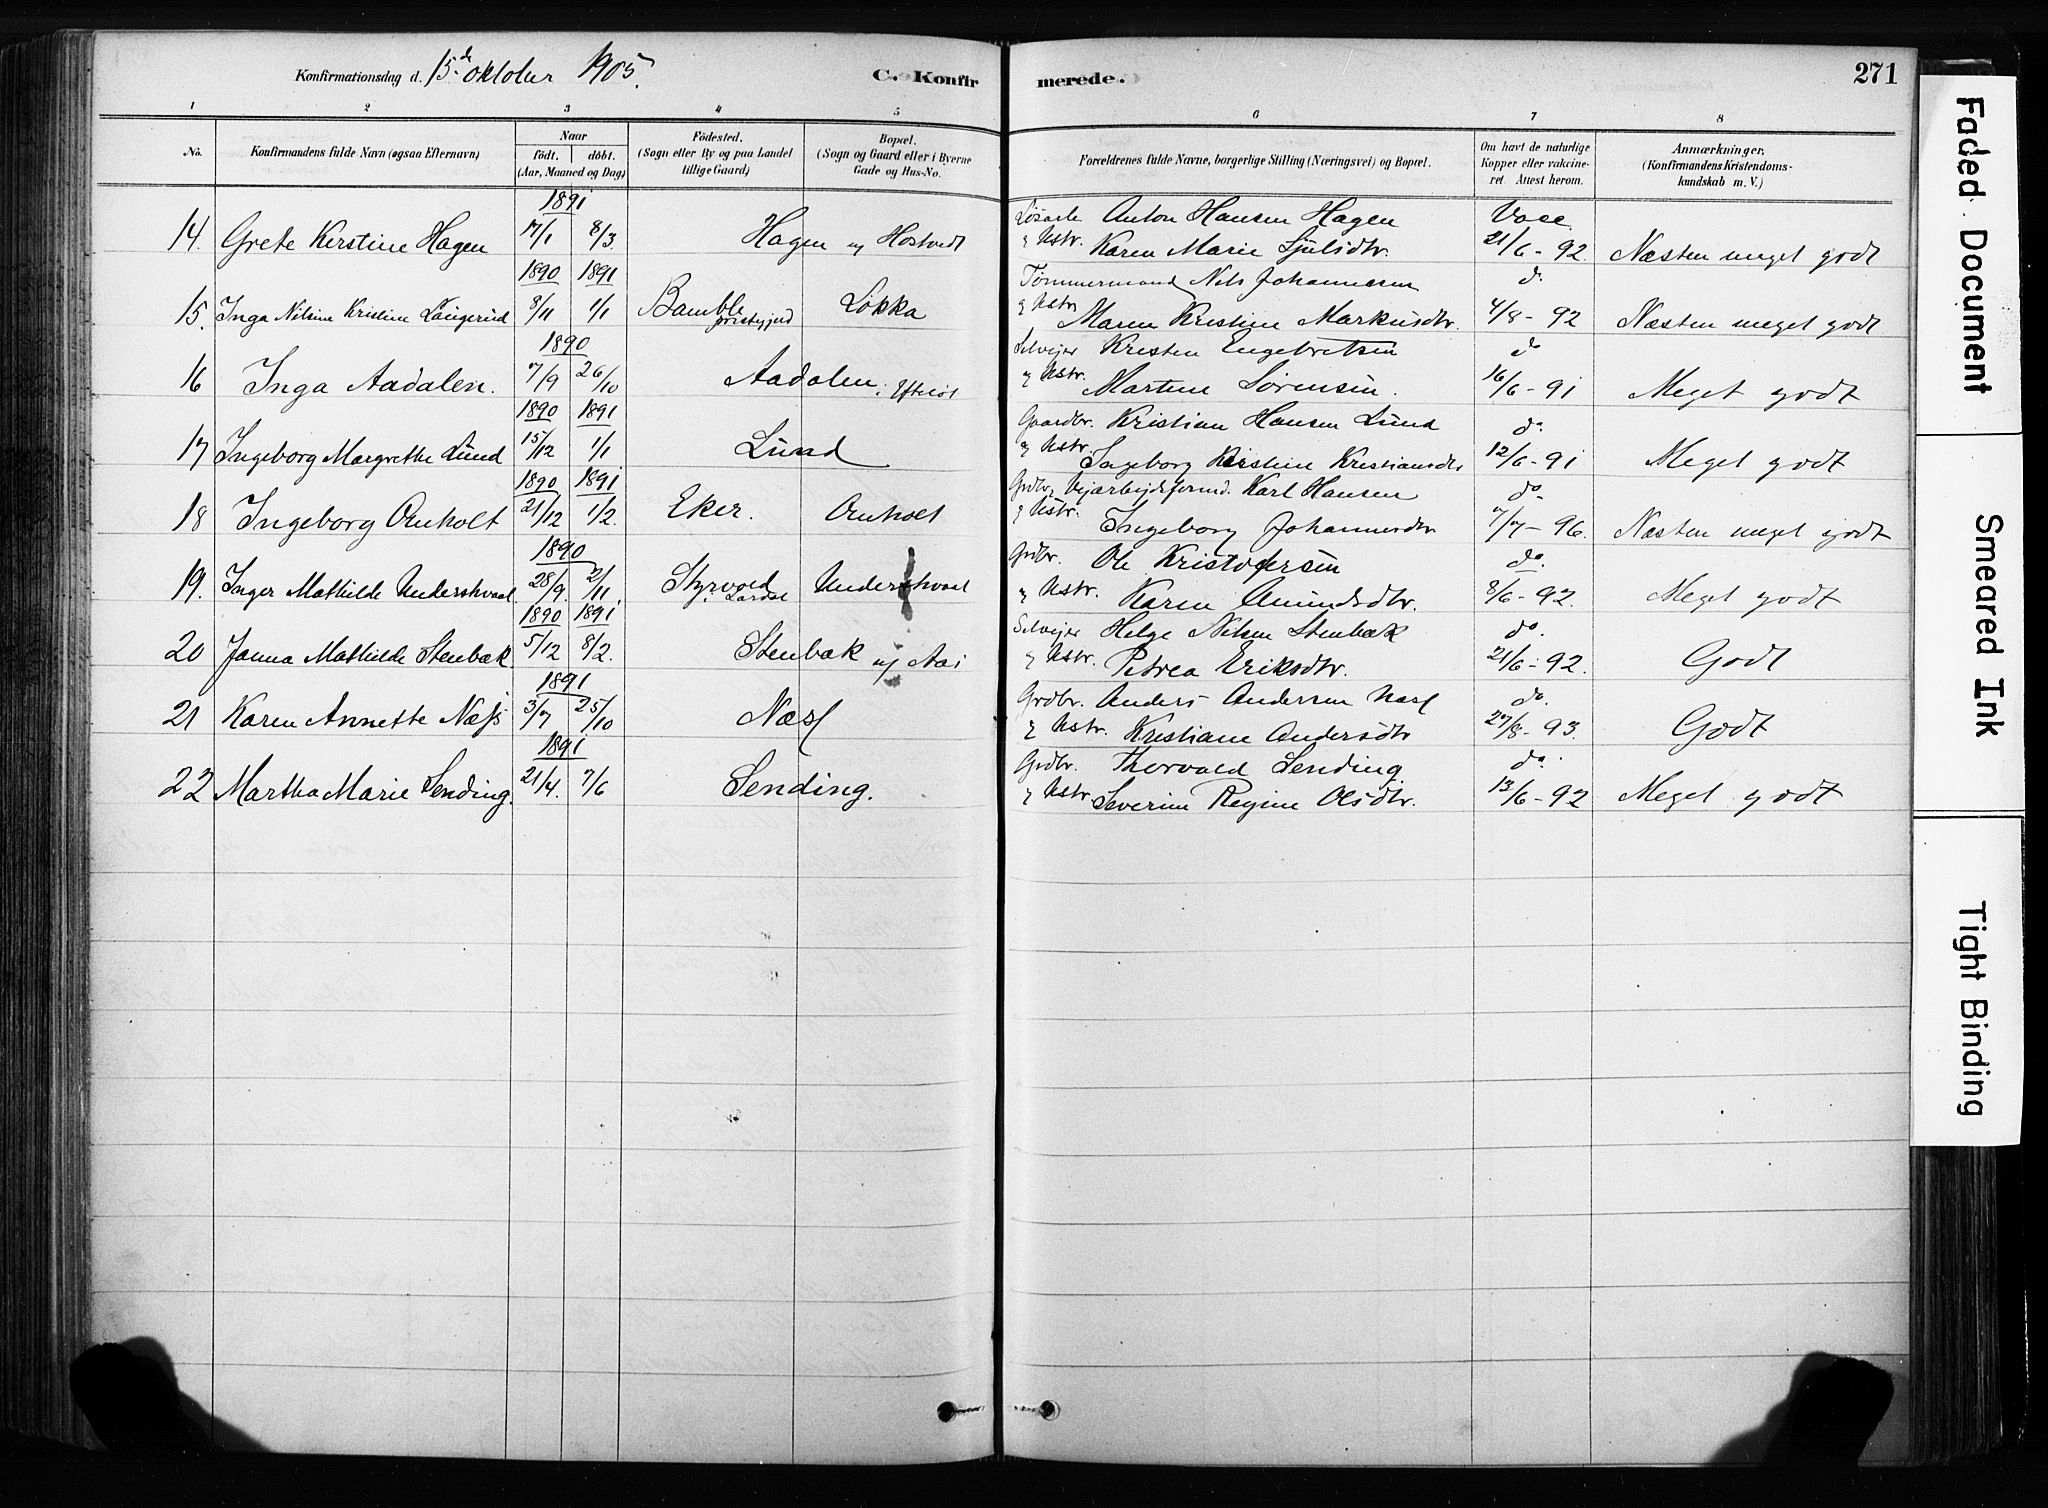 Konfirmationsdag d. 15de oktober 1905.
C. Konfirmerede.
271
1 2 3 4 5 6 7 8
No.
Konfirmandens fulde Navn (ogsaa Efternavn)
Naar
födt. döbt.
(Aar, Maaned og Dag)
Födested.
(Sogn eller By og paa Landet tillige Gaard)
Bopæl.
(Sogn og Gaard eller i Byerne Gade og Hus-No.
Forældrenes fulde Navne, borgerlige Stilling (Næringsvei) og Bopæl.
Om havt de naturlige Kopper eller vakcineret. Attest herom.
Anmærkninger.
(Konfirmandens Kristendomskundskab m. V.)
1891
14. Grete Kerstine Hagen 17/1 8/3. Hagen og Hostvedt
Anton Hansen Hagen
g Hstr. Karen Marie
Vacc. 21/6 - 92 Næsten meget godt
1890 1891
15. Inga Nilsine Kristine Laugerud 8/11 1/1 Bamble præstegjeld Løkka
Tømmermand Nils Johannesen
g Hstr Maren Kristine Markusdtr.
do 4/8 - 92 Næsten meget godt
1890
16 Inga Aadalen. 7/9 26/10 Aadalen, Efteløt
Selvejer Kristen Engebretsen
g Hstr. Martine Sørensen.
do 16/6 - 91 Meget godt
1890 1891
17 Ingeborg Margrethe Lund 15/12 1/1 Lund
Gaardbr. Kristian Hansen Lund
og Hstr. Ingeborg Kirstine Kristiansdtr
do 12/6 - 91 Meget godt
1890 1891
18 Ingeborg Omholt 21/12 1/2. Eker. Omholt
Grdbr. g Vejarbejdsformd. Karl Hansen
g Hstr. Ingeborg Johannesdtr
do 7/7 - 96. Næsten meget godt
1890
19. Inger Mathilde Understvaal 28/9. 2/11. Styrvold i Lardal Understvaal
Grdbr. Ole Kristofersen
g Hstr. Karen Amundsdtr.
do. 8/6 - 92. Meget godt
1890 1891
20 Janna Mathilde Stenbæk 5/12 8/2. Stenbæk og Aas
Selvejer Helge Nilsen Stenbæk
g Hstr. Petrea Eriksdtr.
do. 21/6 - 92. Godt
1891
21 Karen Annette Næss 3/7 25/10 Næss
Grdbr. Anders Andersen Næss
g Hstr. Kristiane Andersdtr
do. 27/8 - 93. Godt
1891
22 Martha Marie Sending. 21/4. 7/6 Sending.
Grdbr. Thorvald Sending.
g Hstr Severine Regine Olsdtr.
do. 13/6 - 92 Meget godt
Faded Document
Smeared Ink
Tight Binding